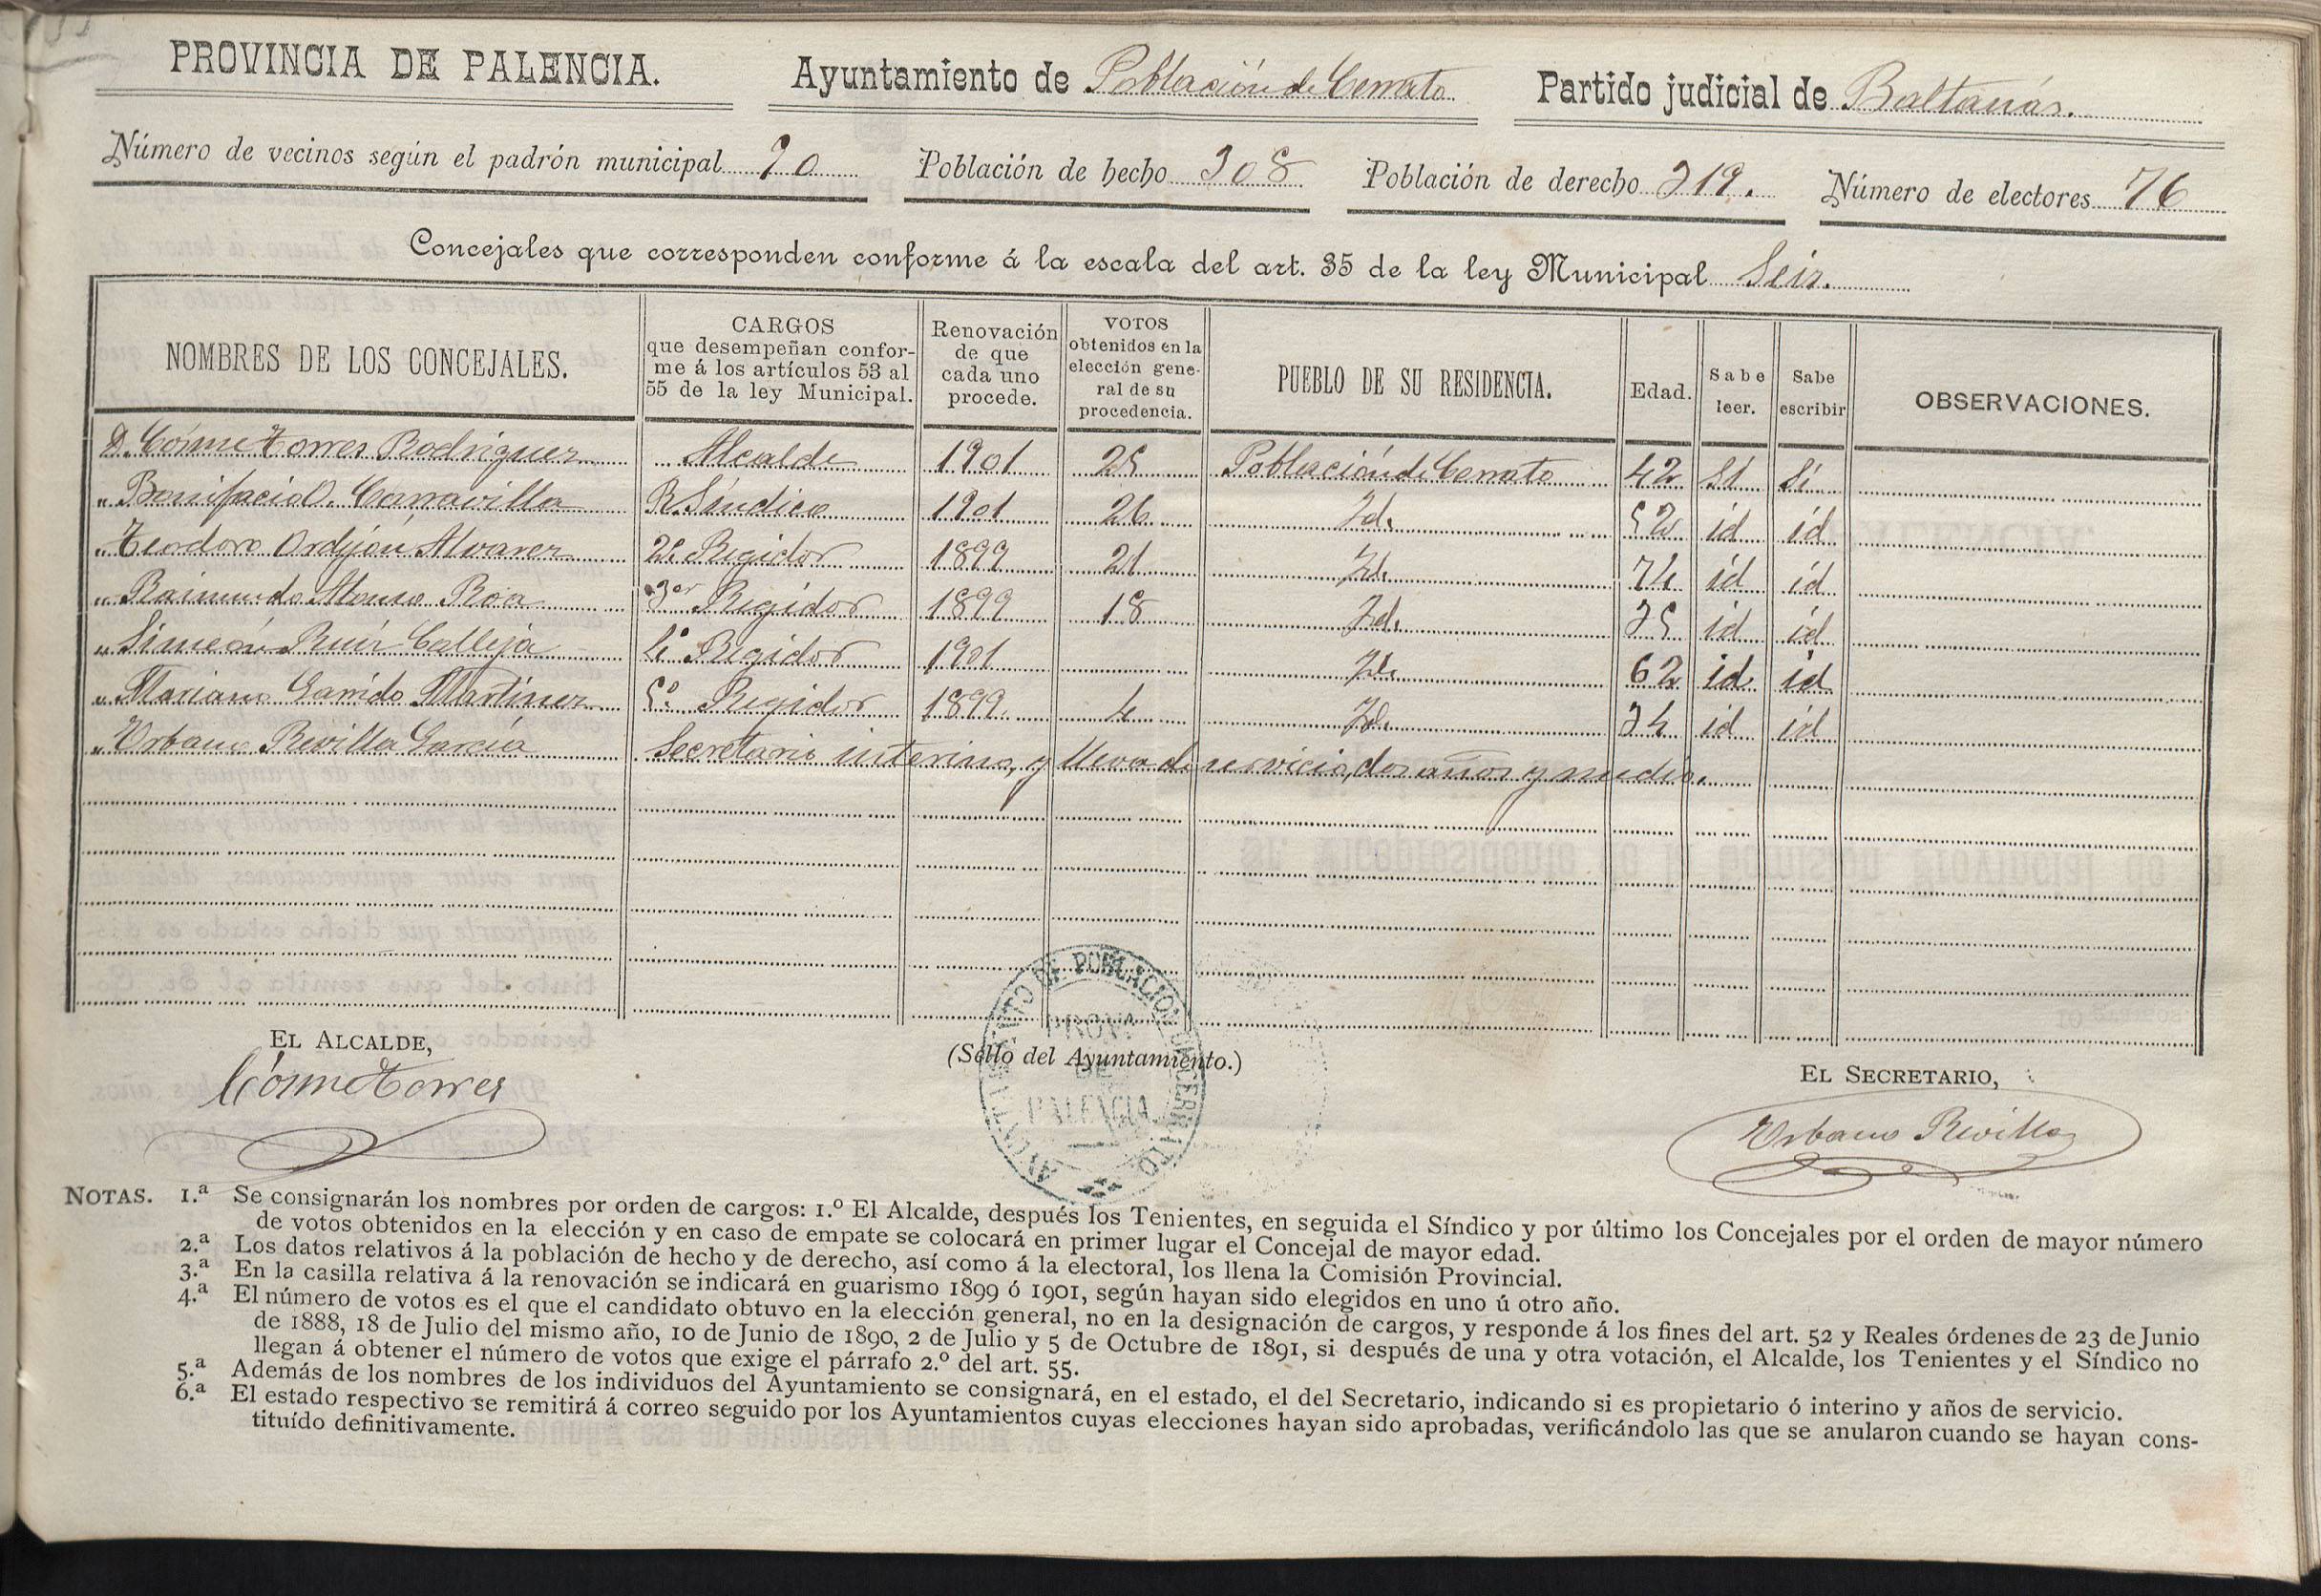 PROVINCIA DE PALENCIA. Ayuntamiento de Población de Cerrato Partido judicial de Baltanás.
Número de vecinos según el padrón municipal 90 Población de hecho 308 Población de derecho 319. Número de electores 76
Concejales que corresponden conforme á la escala del art. 35 de la ley Municipal Seis.
NOMBRES DE LOS CONCEJALES. CARGOS que desempeñan conforme á los artículos 53 al 55 de la ley Municipal. Renovación de que cada uno procede. VOTOS obtenidos en la elección general de su procedencia. PUEBLO DE SU RESIDENCIA. Edad. Sabe leer. Sabe escribir OBSERVACIONES.
D. Cósme Torres Rodriguez Alcalde 1901 25 Población de Cerrato 42 Sí Sí
" Bonifacio O. Carravilla R. Síndico 1901 26 Id. 52 id id
" Teodoro Ordejón Alvarez 2º Regidor 1899 21 Id. 74 id id
" Raimundo Alonso Roa 3er Regidor 1899 18 Id. 35 id id
" Simeón Ruiz Calleja 4º Regidor 1901 Id. 62 id id
" Mariano Garrido Martinez 5º Regidor 1899. 4 Id. 34 id id
" Urbano Revilla García Secretario interino, y lleva de servicio, dos años y medio.
EL ALCALDE,
Cósme Torres
(Sello del Ayuntamiento.)
AYUNTAMIENTO DE POBLACION DE CERRATO
PROVA
DE
PALENCIA
EL SECRETARIO,
Urbano Revilla
NOTAS. 1.ª Se consignarán los nombres por orden de cargos: 1.º El Alcalde, después los Tenientes, en seguida el Síndico y por último los Concejales por el orden de mayor número
de votos obtenidos en la elección y en caso de empate se colocará en primer lugar el Concejal de mayor edad.
2.ª Los datos relativos á la población de hecho y de derecho, así como á la electoral, los llena la Comisión Provincial.
3.ª En la casilla relativa á la renovación se indicará en guarismo 1899 ó 1901, según hayan sido elegidos en uno ú otro año.
4.ª El número de votos es el que el candidato obtuvo en la elección general, no en la designación de cargos, y responde á los fines del art. 52 y Reales órdenes de 23 de Junio
de 1888, 18 de Julio del mismo año, 10 de Junio de 1890, 2 de Julio y 5 de Octubre de 1891, si después de una y otra votación, el Alcalde, los Tenientes y el Síndico no
llegan á obtener el número de votos que exige el párrafo 2.º del art. 55.
5.ª Además de los nombres de los individuos del Ayuntamiento se consignará, en el estado, el del Secretario, indicando si es propietario ó interino y años de servicio.
6.ª El estado respectivo se remitirá á correo seguido por los Ayuntamientos cuyas elecciones hayan sido aprobadas, verificándolo las que se anularon cuando se hayan cons-
tituído definitivamente.